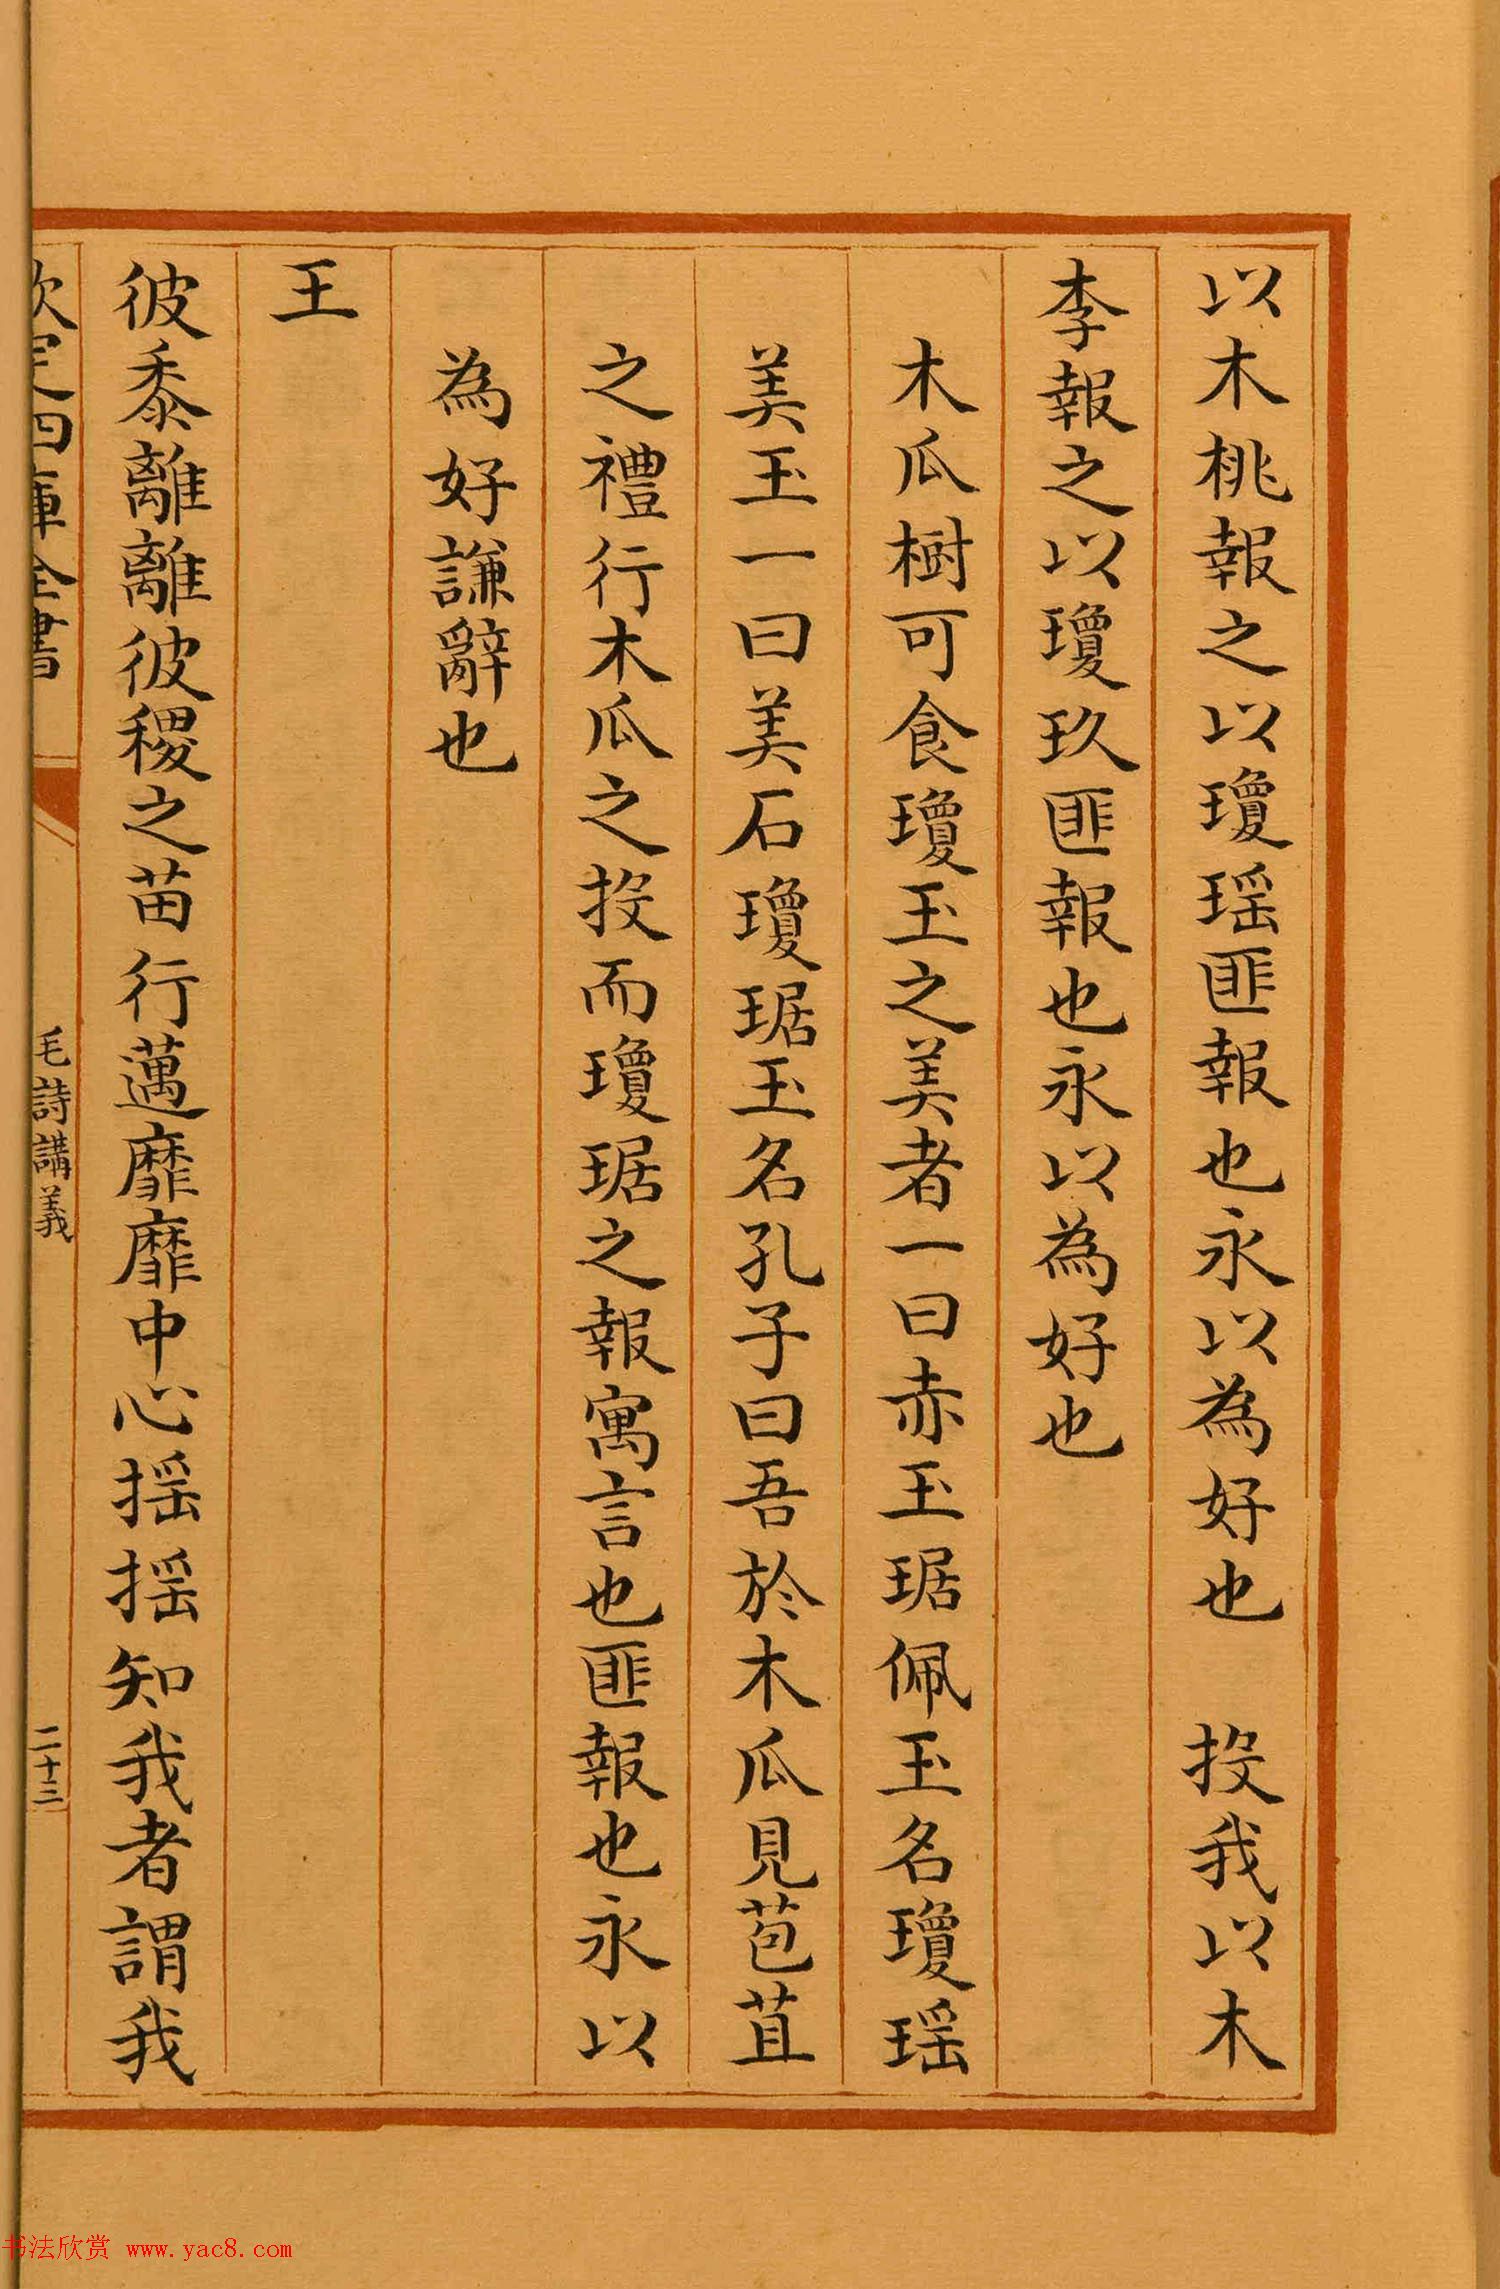 以木桃報之以瓊瑶匪報也永以為好也　投我以木
李報之以瓊玖匪報也永以為好也
木瓜樹可食瓊玉之美者一曰赤玉琚佩玉名瓊瑶
美玉一曰美石瓊琚玉名孔子曰吾於木瓜見苞苴
之禮行木瓜之投而瓊琚之報寓言也匪報也永以
為好謙辭也
王
彼黍離離彼稷之苗行邁靡靡中心揺揺知我者謂我
欽定四庫全書
毛詩講義
二十三
书法欣赏 www.yac8.com